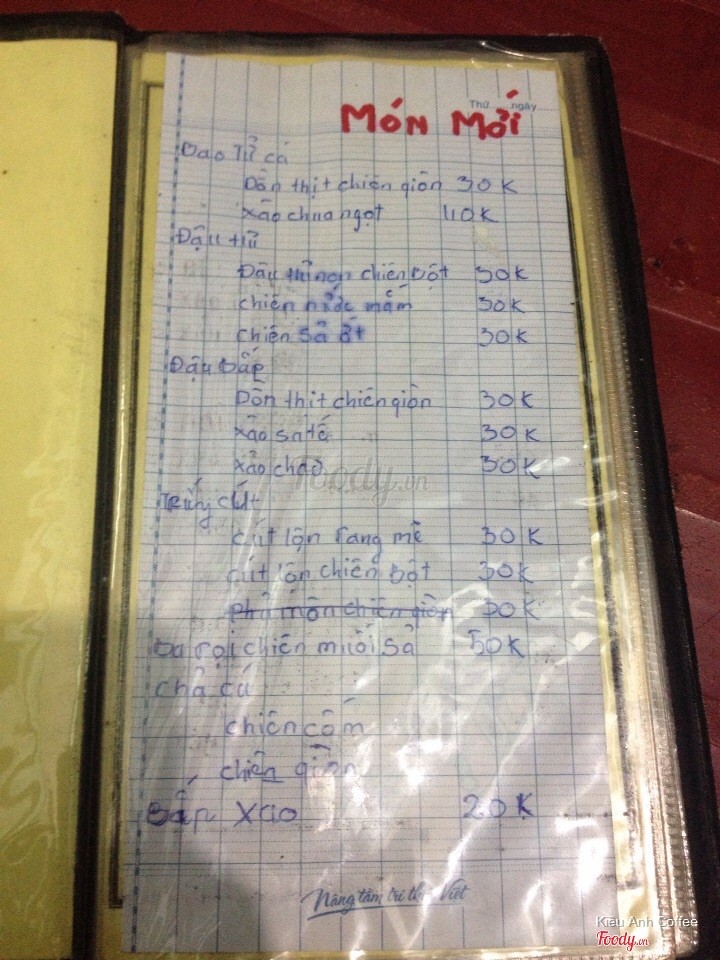 Thứ......ngày......
MÓN MỚI
Bao Tử cá
Dồn thịt chiên giòn 30K
xào chua ngọt 40K
Đậu hũ
Đậu hũ non chiên bột 30K
chiên nước mắm 30K
chiên sả ớt 30K
Đậu bắp
Dồn thịt chiên giòn 30K
xào sa tế 30K
xào chao 30K
Foody.vn
Trứng cút
cút lộn rang me 30K
cút lộn chiên bột 30K
phủ môn chiên giòn 30K
Ba rọi chiên muối sả 50K
chả cá
chiên cốm
chiên giòn
Bắp xào 20K
Nâng tầm tri thức Việt
Kieu Anh Coffee
Foody.vn